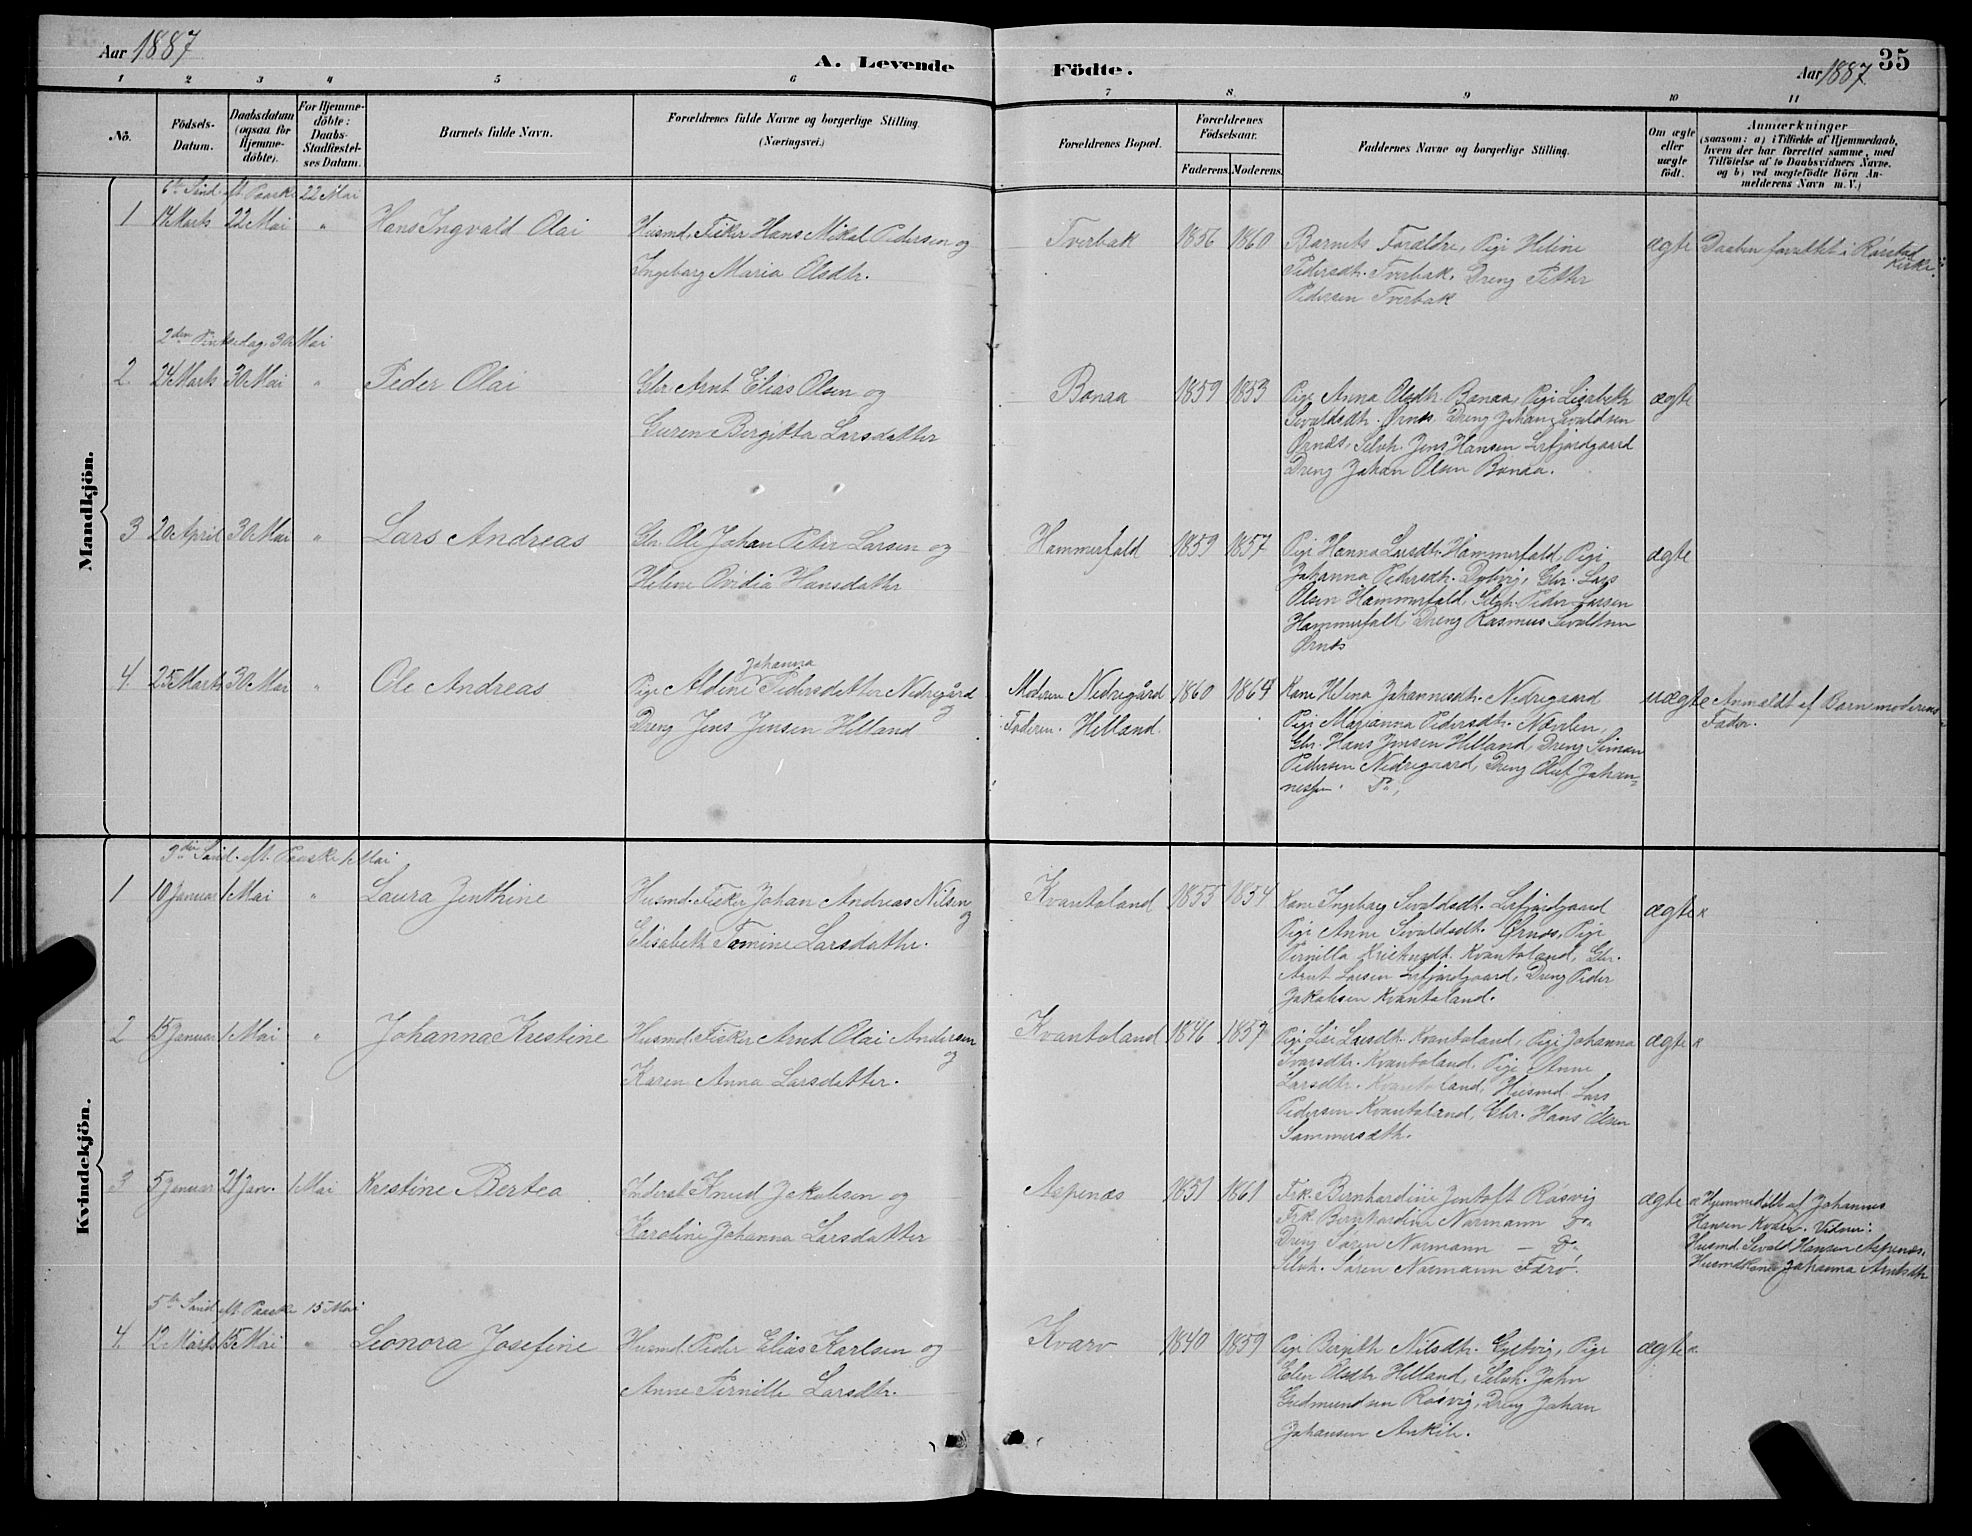 Aar 1887
A. Levende
Födte.
Aar 1887
35
1 2 3 4 5 6 7 8 9 10 11
No.
Födsels-Datum.
Daabsdatum (ogsaa for Hjemme-döbte).
For Hjemme-döbte: Daabs-Stadfæstel-ses Datum.
Barnets fulde Navn.
Forældrenes fulde Navne og borgerlige Stilling.
(Næringsvei.)
Forældrenes Bopæl.
Forældrenes Födselsaar.
Faderens. Moderens.
Faddernes Navne og borgerlige Stilling.
Om ægte eller uægte født.
Anmærkninger
(saasom: a) i Tilfælde af Hjemmedaab, hvem der har forrettet samme, med Tilföielse af to Daabsvidners Navne, og b) ved uægtefödte Börn An-melderens Navn m. V.)
Mandkjön.
6te Sönd. eft. Paaske 22 Mai
1 14 Marts 22 Mai " Hans Ingvald Olai
Husmd. Fisker Hans Mikal Pedersen og
Ingeborg Maria Olsdtr.
Tverbak 1856 1860
Barnets Forældre, Pige Heline
Pedersdtr. Tverbak, Dreng Petter
Pedersen Tverbak
ægte
Daaben forrettet i Rørstad
Kirke.
2den Pintsedag, 30 Mai
2 24 Marts 30 Mai " Peder Olai
Gbr. Arnt Elias Olsen og
Guren Bergitta Larsdatter
Bonaa 1859 1853
Pige Anna Olsdtr. Bonaa, Pige Lisabeth
Sivaldsdtr. Ørnes, Dreng Johan Sivaldsen
Ørnes, Selvh. Jens Hansen Lerfjordgaard
Dreng Johan Olsen Bonaa.
ægte
3 20 April 30 Mai " Lars Andreas
Gbr. Ole Johan Peter Larsen og
Helene Ovidia Hansdatter
Hammerfald 1859 1857
Pige Hanna Larsdtr. Hammerfald, Pige
Johanna Pedersdtr. Dybvig, Gbr. Lars
Olsen Hammerfald, Selvh. Peder Larsen
Hammerfald, Dreng Rasmus Sivaldsen
Ørnes
ægte
4. 25 Marts 30 Mai " Ole Andreas
Johanna
Pige Aldine Pedersdatter Nedregård
og
Dreng Jens Jensen Helland
Moderen Nedregård
Faderen. Helland.
1860 1864
Kone Helena Johannesdtr. Nedregaard
Pige Marianna Pedersdtr. Nævelen,
Gbr. Hans Jensen Helland, Dreng Simon
Pedersen Nedregaard, Dreng Oluf Johan-
nessen Do,
uægte
Anmeldt af Barnemoderens
Fader.
Kvindekjön.
3die Sönd. eft. Paaske 1 Mai
1 10 Januar 1 Mai " Laura Jenthine
Husmd. Fisker Johan Andreas Nilsen
og
Elisabeth Tomine Larsdatter.
Kvantoland 1855 1854
Kone Ingeborg Sivaldsdtr. Lerfjordgaard
Pige Anne Sivaldsdtr. Ørnes, Pige
Pernilla Kristensdtr. Kvantoland, Gbr.
Arnt Larsen Lerfjordgaard, Dreng Peder
Jakobsen Kvantoland.
ægte
2 15 Januar 1 Mai " Johanna Krestine
Husmd. Fisker Arnt Olai Andersen
og
Karen Anna Larsdatter.
Kvantoland 1846 1857
Pige Lise Larsdtr. Kvantoland, Pige Johanna
Ivarsdtr. Kvantoland, Pige Anne
Larsdtr. Kvantoland, Husmd. Lars
Pedersen Kvantoland, Gbr. Hans Olsen
Sommersæth.
ægte
3 5 Januar 21 Janr. 1 Mai Krestine Bertea
Inderst Knud Jakobsen og
Karoline Johanna Larsdatter
Aspenæs 1851 1861
Frk. Bernhardine Jentoft Røsvig
Frk. Bernhardine Normann Do
Dreng Søren Normann — Do
Selvh. Søren Normann Færø.
ægte
Hjemmedøbt af Johannes
Hansen Kvarv. Vidner:
Husmd. Sivald Hansen Aspenæs.
Husmdkone Johanna Arntsdtr.
5te Sönd. eft. Paaske 15 Mai
4. 12 Marts 15 Mai " Leonora Josefine
Husmd. Peder Elias Karlsen og
Anne Pernille Larsdtr.
Kvarv 1840 1859
Pige Bergith Nilsdtr. Gjelvig, Pige
Elen Olsdtr Helland, Selvh. John
Gudmundsen Røsvig, Dreng Johan
Johansen Ankile.
ægte